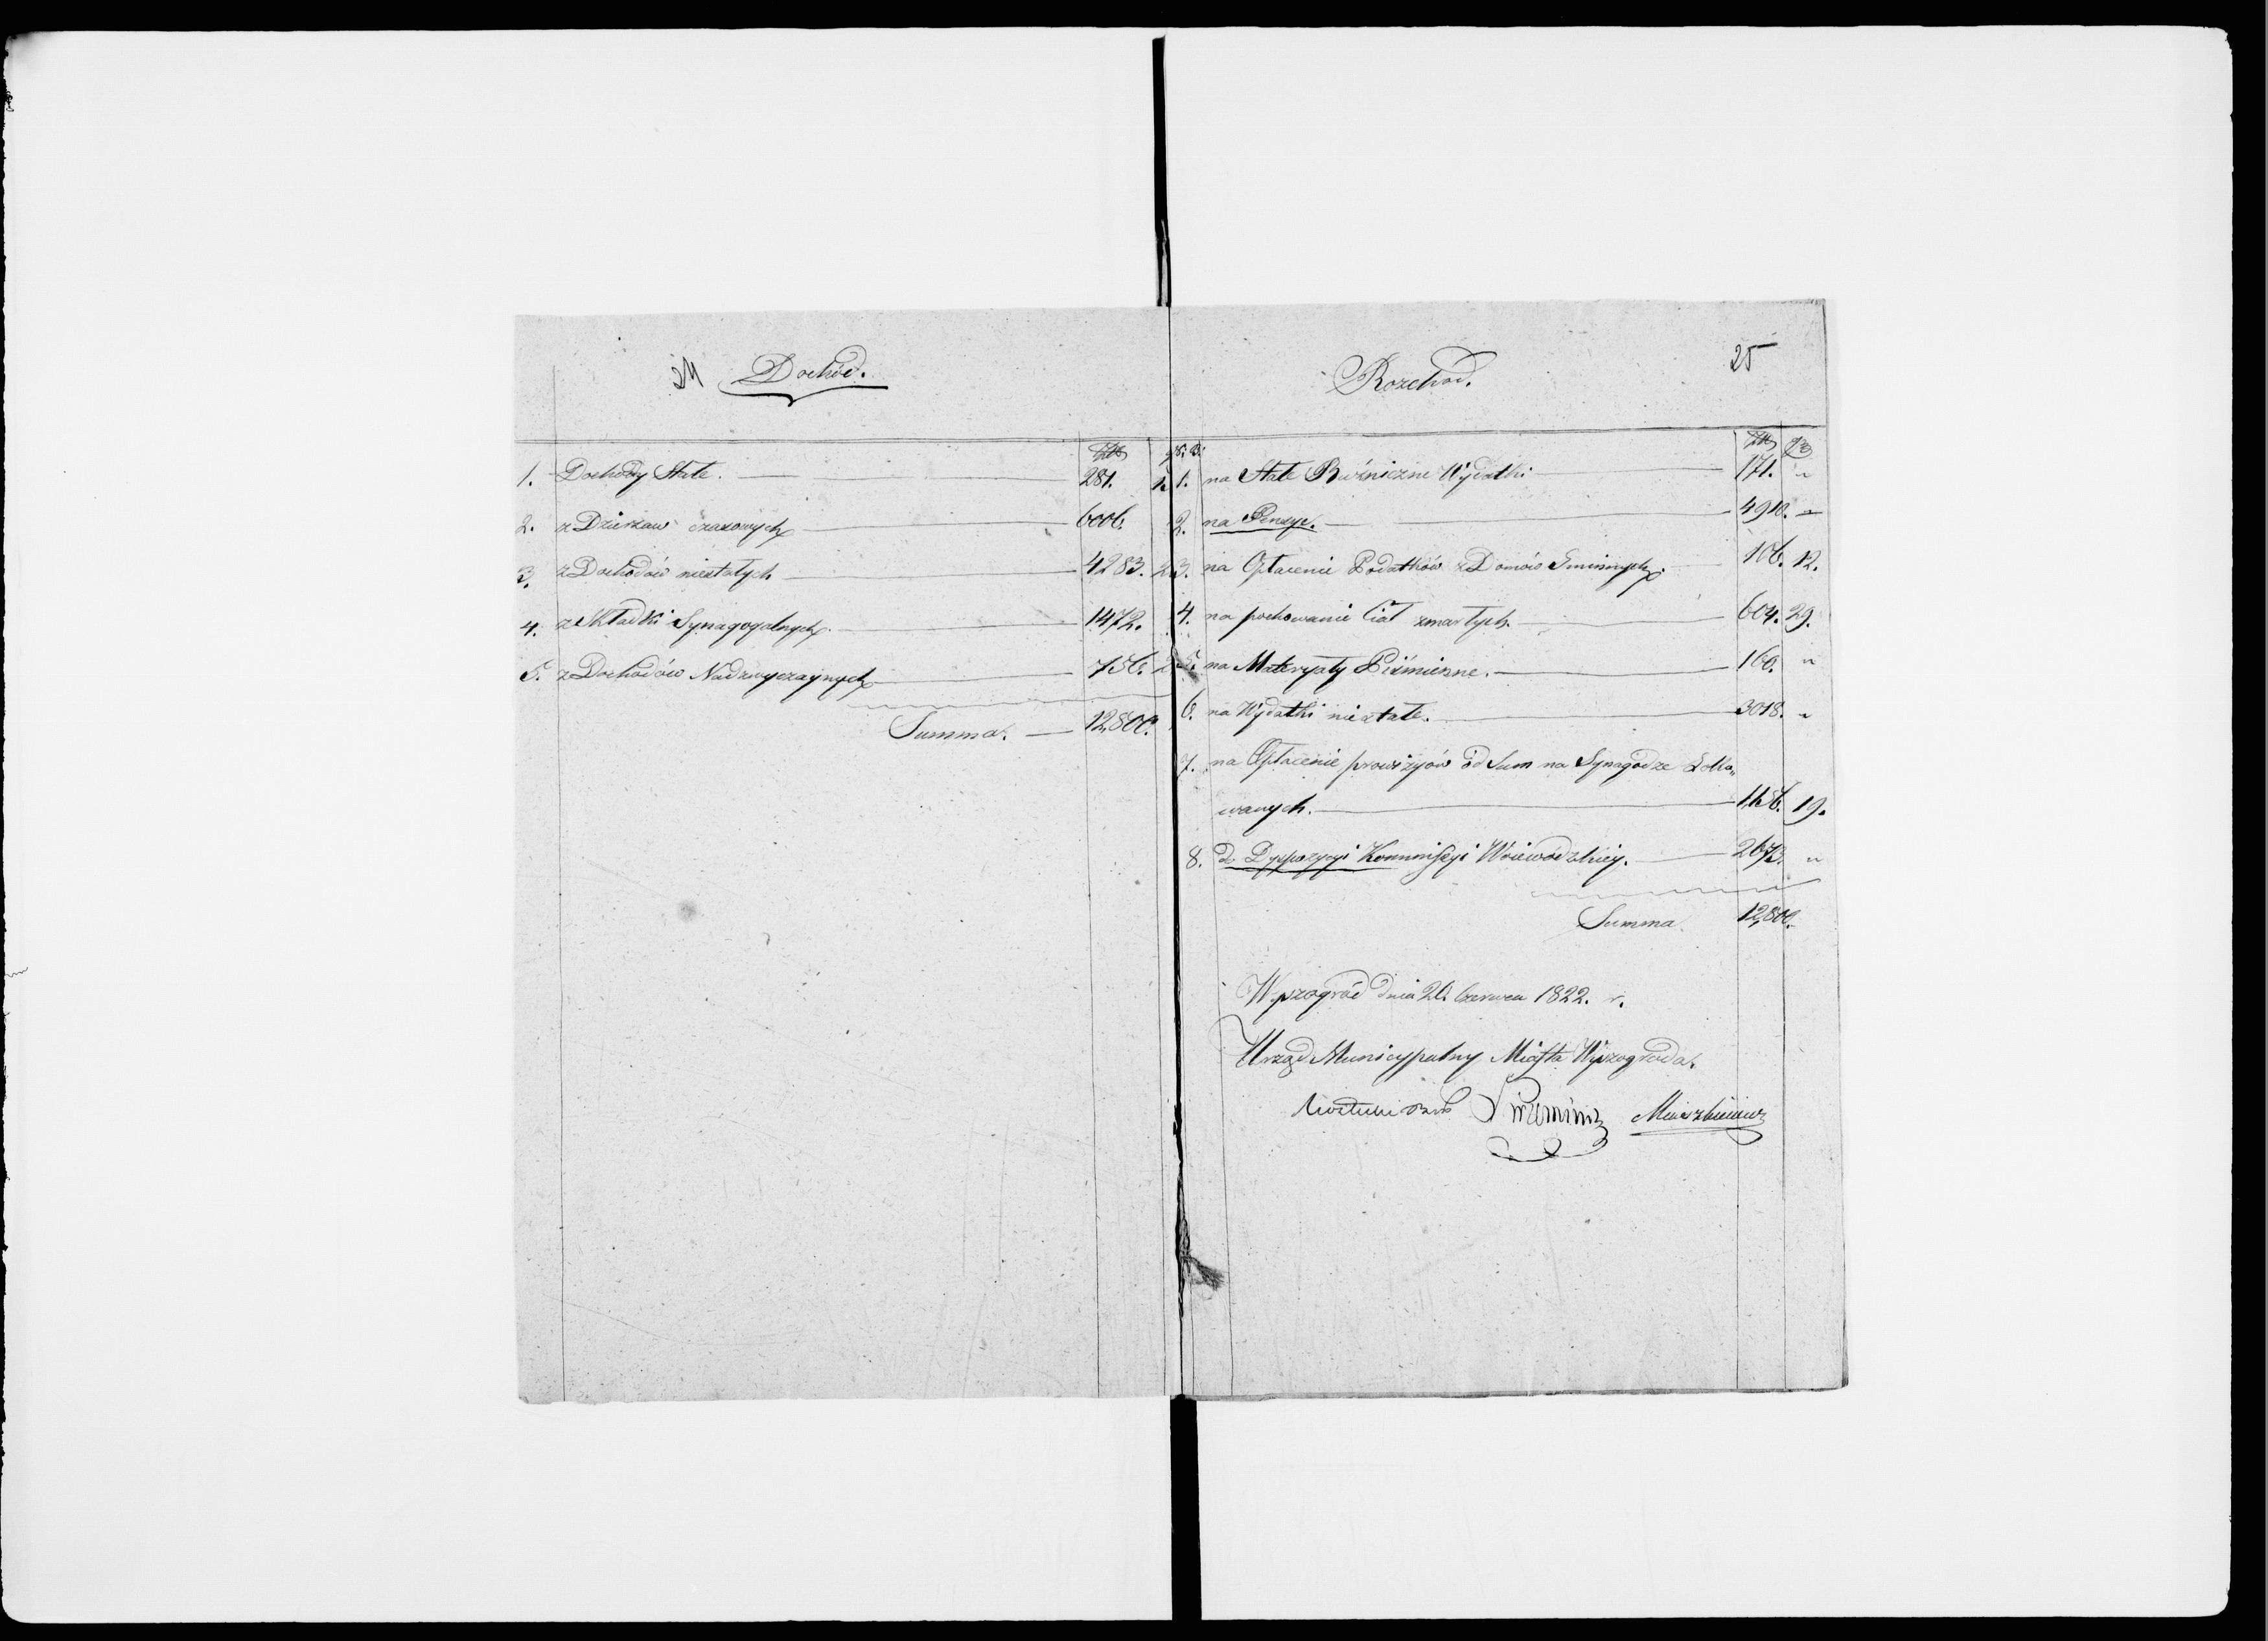 24 Dochód.
Złp
1. Dochody Stałe. 281.
2. z Dzierzaw czasowych 6006.
3. z Dochodów niestałych 4283.
4. z Składki Synagogalnych. 1472.
5. z Dochodów Nadzwyczaynych 756.
Summa. 12,800.
Rozchod. 25
Złp gr
1. na Stałe Bużniczne Wydatki 171. "
2. na Pensye. 4910. "
3. na Opłacenie Podatków z Domów Gminnych. 106. 12.
4. na pochowanie Ciał zmarłych. 604. 29.
5. na Materyały Piśmienne. 160. "
6. na Wydatki niestałe. 3018. "
7. na Opłacenie prowizyów od Sum na Synagodze Loko„
wanych. 1156. 19.
8. do Dyspozycyi Kommissyi Woiewódzkiey. 2673. "
Summa 12,800.
Wyszogród dnia 20. Czerwca 1822. r.
Urząd Municypalny Miasta Wyszogroda.